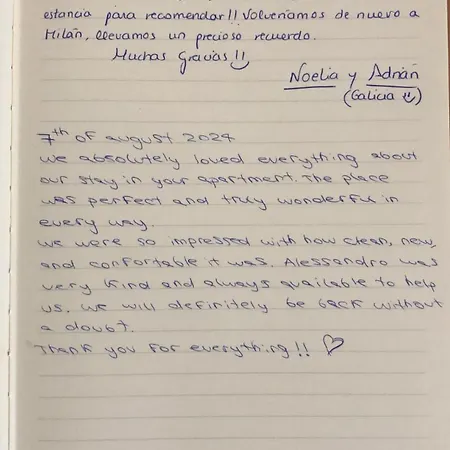 estancia para recomendar!! Volveríamos de nuevo a
Milán, llevamos un precioso recuerdo.
Muchas Gracias!!
Noelia y Adrián
(Galicia)
7th of august 2024
we absolutely loved everything about
our stay in your apartment. The place
was perfect and truly wonderful in
every way.
we were so impressed with how clean, new,
and confortable it was. Alessandro was
very kind and always available to help
us. we will definitely be back without
a doubt.
Thank you for everything!! ♡